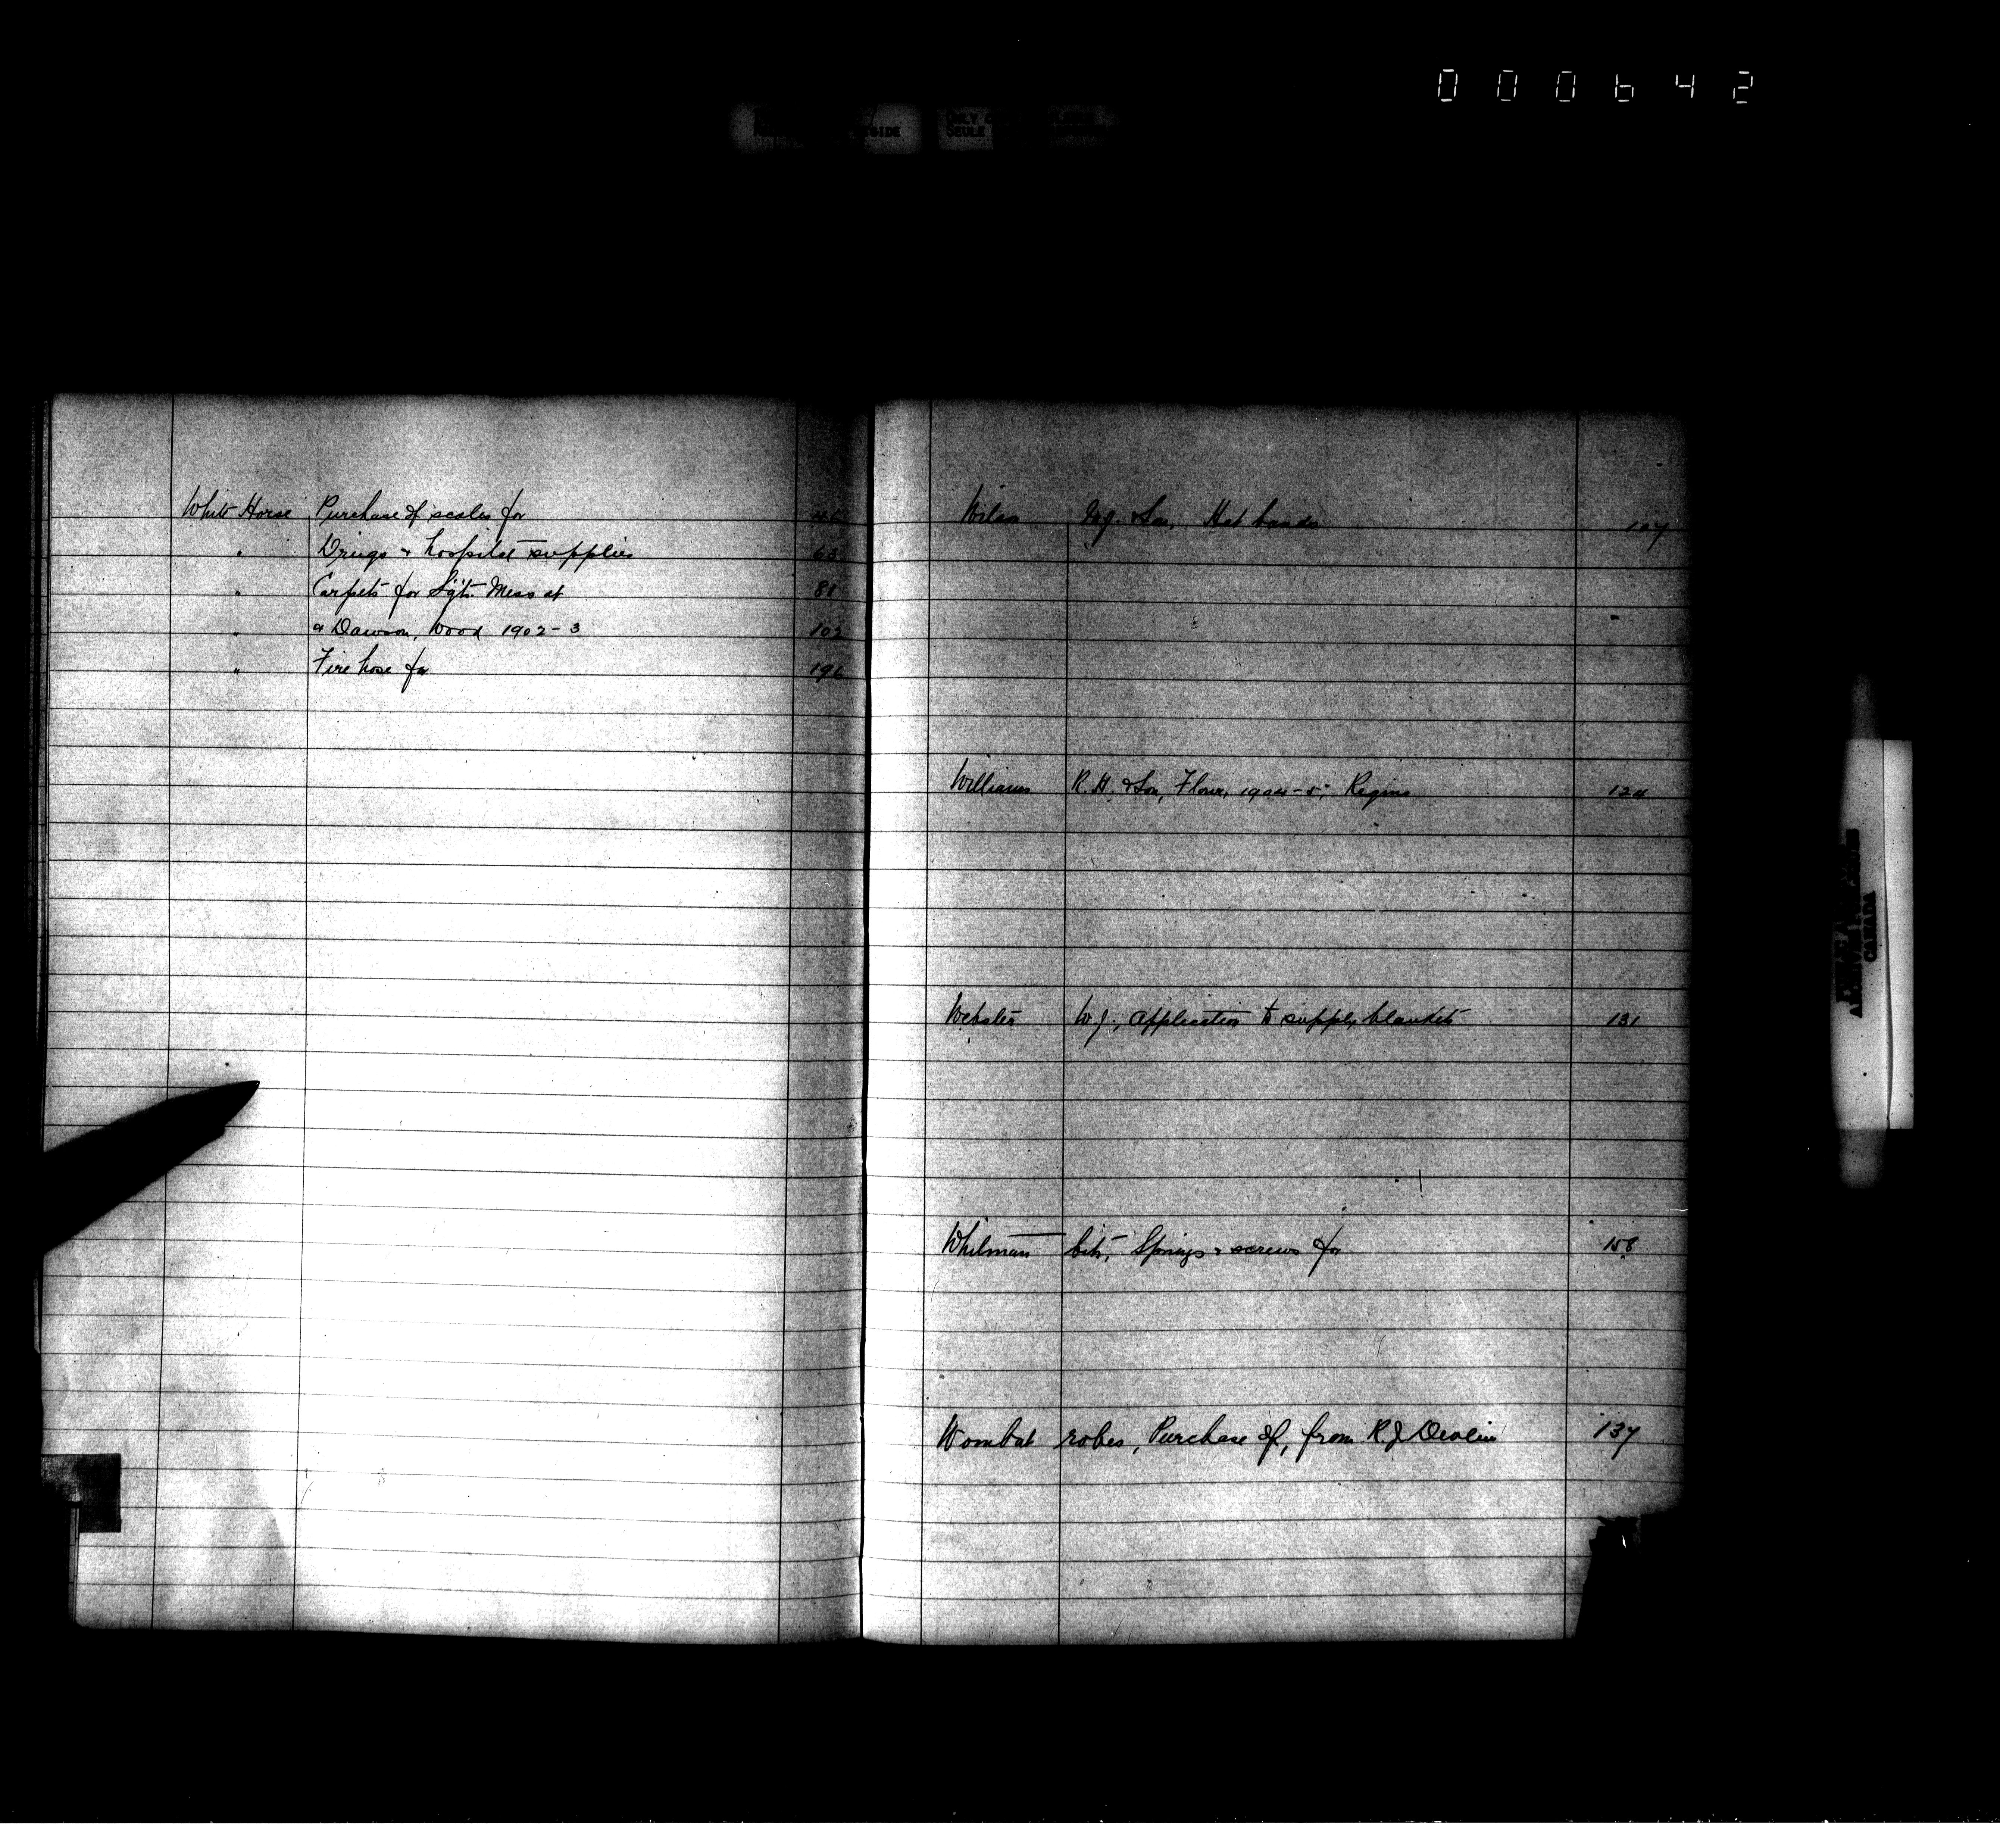 000642
SIDE ONLY
SEULE
White Horse Purchase of scales for
" Drugs & hospital supplies 63
" Carpets for Sgts. Mess at 81
" & Dawson, Wood 1902-3 102
" Fire hose for 196
Wilson & Son, Hat bands 107
Williams R. H. & Son, Flour, 1904-5, Regina 124
Webster W J, application to supply blankets 131
Whitman bit, Springs & screws for 158
Wombat robes, Purchase of, from R. J. Devlin 137
CANADA